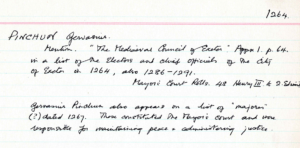 1264.
PINCHUN Germanus.
Mention. "The Medieval Council of Exeter" Appx 1. p. 64.
in a list of the Electors and chief officials of the City
of Exeter in 1264, also 1286-1291.
Mayor's Court Rolls. 48 Henry III &
Germanus Pinchun also appears on a list of "majores"
(?) dated 1267. These constituted the Mayor's Court and were
responsible for maintaining peace & administering justice.